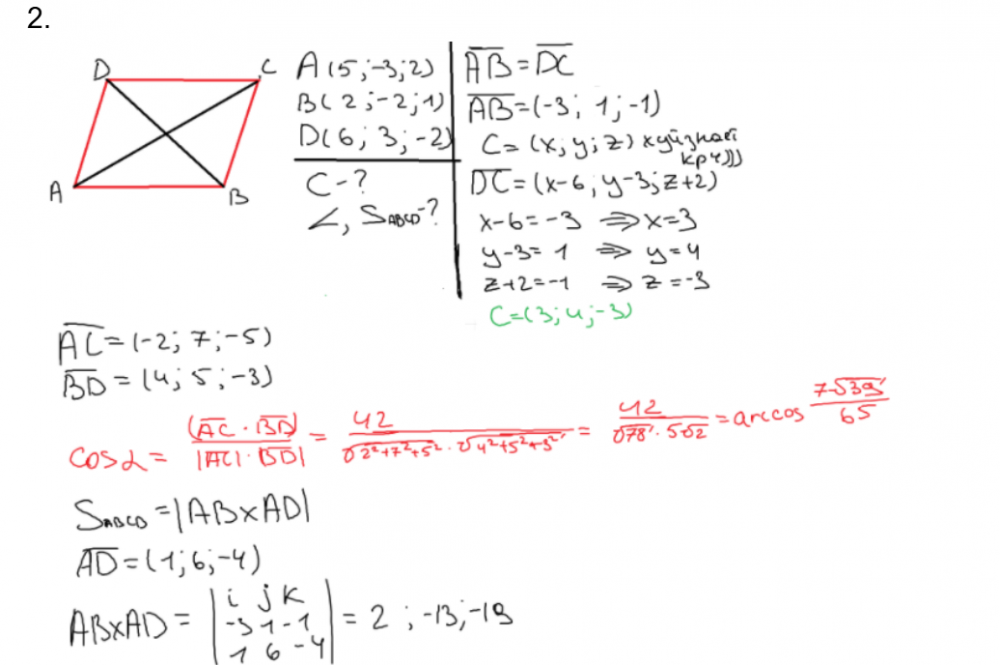 2.
D C
A B
A(5;-3;2)
B(2;-2;1)
D(6;3;-2)
C-?
∠, SABCD-?
AB=DC
AB=(-3; 1;-1)
C=(x;y;z) хуй знает
крч)))
DC=(x-6;y-3;z+2)
x-6=-3 ⇒x=3
y-3=1 ⇒ y=4
z+2=-1 ⇒ z=-3
C=(3;4;-3)
AC=(-2; 7;-5)
BD=(4; 5;-3)
cosα= (AC·BD) / |AC|·|BD| = 42 / √2²+7²+5² · √4²+5²+3² = 42 / √78 · 5√2 = arccos 7√39 / 65
SABCD=|ABxAD|
AD=(1;6;-4)
ABxAD= | i j k
-3 1 -1
1 6 -4 | = 2 ;-13;-19